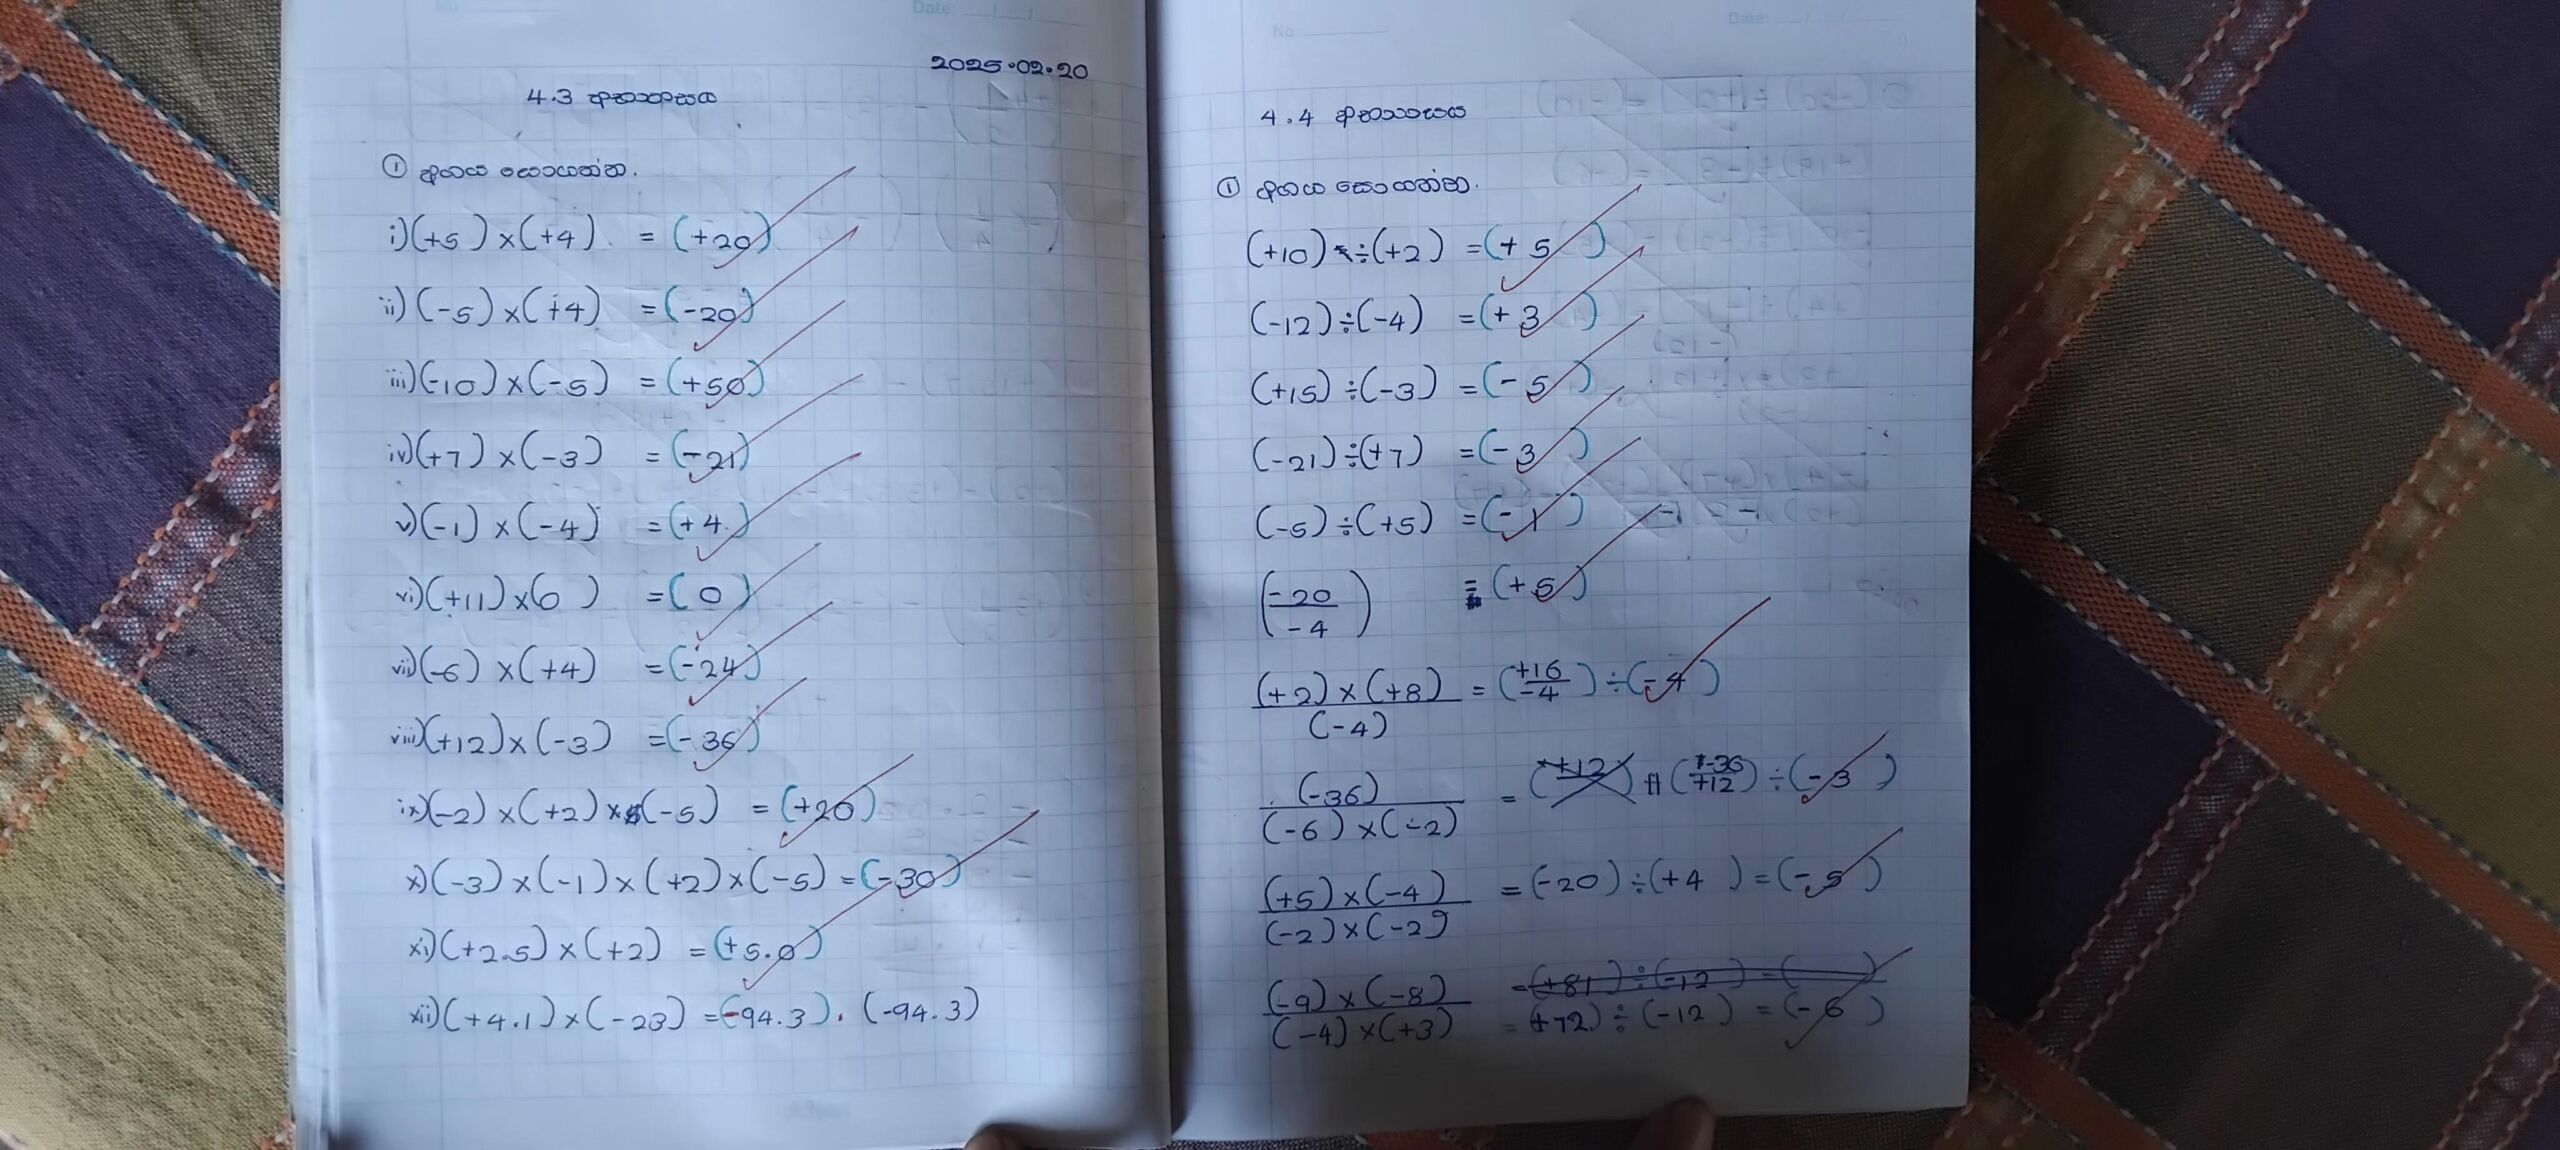 No
Date: / /
2025.02.20
4.3 අභ්‍යාසය
① අගය සොයන්න.
i) (+5) × (+4) = (+20)
ii) (-5) × (+4) = (-20)
iii) (-10) × (-5) = (+50)
iv) (+7) × (-3) = (-21)
v) (-1) × (-4) = (+4)
vi) (+11) × (0) = (0)
vii) (-6) × (+4) = (-24)
viii) (+12) × (-3) = (-36)
ix) (-2) × (+2) × (-5) = (+20)
x) (-3) × (-1) × (+2) × (-5) = (-30)
xi) (+2.5) × (+2) = (+5.0)
xii) (+4.1) × (-23) = (-94.3). (-94.3)
No
Date: / /
4.4 අභ්‍යාසය
① අගය සොයන්න.
(+10) ÷ (+2) = (+5)
(-12) ÷ (-4) = (+3)
(+15) ÷ (-3) = (-5)
(-21) ÷ (+7) = (-3)
(-5) ÷ (+5) = (-1)
(-20 / -4) = (+5)
(+2) × (+8) / (-4) = (+16 / -4) ÷ (-4)
(-36) / (-6) × (-2) = (-36 / +12) ÷ (-3)
(+5) × (-4) / (-2) × (-2) = (-20) ÷ (+4) = (-5)
(-9) × (-8) / (-4) × (+3) = (+81) ÷ (-12) = ( )
= (+72) ÷ (-12) = (-6)